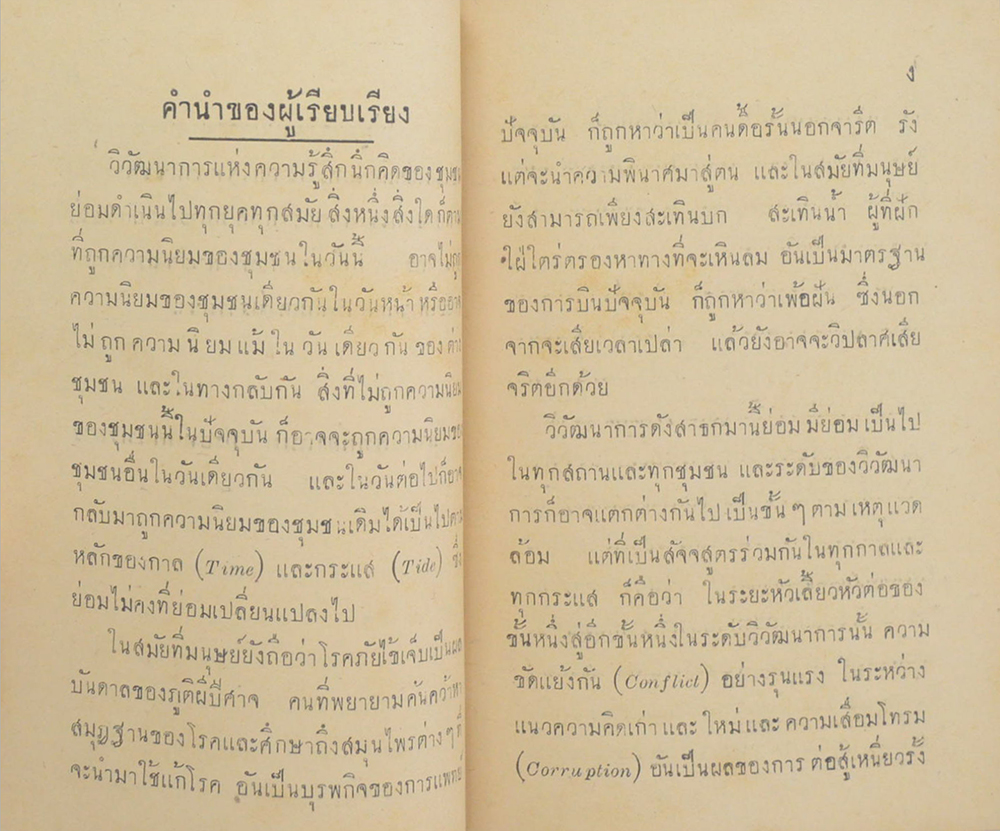 คำนำของผู้เรียบเรียง
วิวัฒนาการแห่งความรู้สึกนึกคิดของชุมชน
ย่อมดำเนินไปทุกยุคทุกสมัย สิ่งหนึ่งสิ่งใดก็ตาม
ที่ถูกความนิยมของชุมชนในวันนี้ อาจไม่ถูก
ความนิยมของชุมชนเดียวกันในวันหน้า หรืออาจ
ไม่ถูกความนิยมแม้ในวันเดียวกันของต่าง
ชุมชน และในทางกลับกัน สิ่งที่ไม่ถูกความนิยม
ของชุมชนนี้ในปัจจุบัน ก็อาจจะถูกความนิยมของ
ชุมชนอื่นในวันเดียวกัน และในวันต่อไปก็อาจ
กลับมาถูกความนิยมของชุมชนเดิมได้เป็นไปตาม
หลักของกาล (Time) และกระแส (Tide) ซึ่ง
ย่อมไม่คงที่ย่อมเปลี่ยนแปลงไป
ในสมัยที่มนุษย์ยังถือว่าโรคภัยไข้เจ็บเป็นผล
บันดาลของภูติผีปีศาจ คนที่พยายามค้นคว้าหา
สมุฏฐานของโรคและศึกษาถึงสมุนไพรต่างๆที่
จะนำมาใช้แก้โรค อันเป็นบุรพกิจของการแพทย์
ง
ปัจจุบัน ก็ถูกหาว่าเป็นคนดื้อรั้นนอกจารีต รัง
แต่จะนำความพินาศมาสู่ตน และในสมัยที่มนุษย์
ยังสามารถเพียงสะเทินบก สะเทินน้ำ ผู้ที่ฝัก
ใฝ่ใตร่ตรองหาทางที่จะเหินลม อันเป็นมาตรฐาน
ของการบินปัจจุบัน ก็ถูกหาว่าเพ้อฝัน ซึ่งนอก
จากจะเสียเวลาเปล่า แล้วยังอาจจะวิปลาศเสีย
จริตอีกด้วย
วิวัฒนาการดังสาธกมานี้ย่อม มีย่อม เป็นไป
ในทุกสถานและทุกชุมชน และระดับของวิวัฒนา
การก็อาจแตกต่างกันไป เป็นขั้น ๆ ตาม เหตุ แวด
ล้อม แต่ที่เป็นสัจจสูตรร่วมกันในทุกกาลและ
ทุกกระแส ก็คือว่า ในระยะหัวเลี้ยวหัวต่อของ
ขั้นหนึ่งสู่อีกขั้นหนึ่งในระดับวิวัฒนาการนั้น ความ
ขัดแย้งกัน (Conflict) อย่างรุนแรง ในระหว่าง
แนวความคิดเก่า และ ใหม่ และ ความเสื่อมโทรม
(Corruption) อันเป็นผลของการ ต่อสู้เหนี่ยวรั้ง